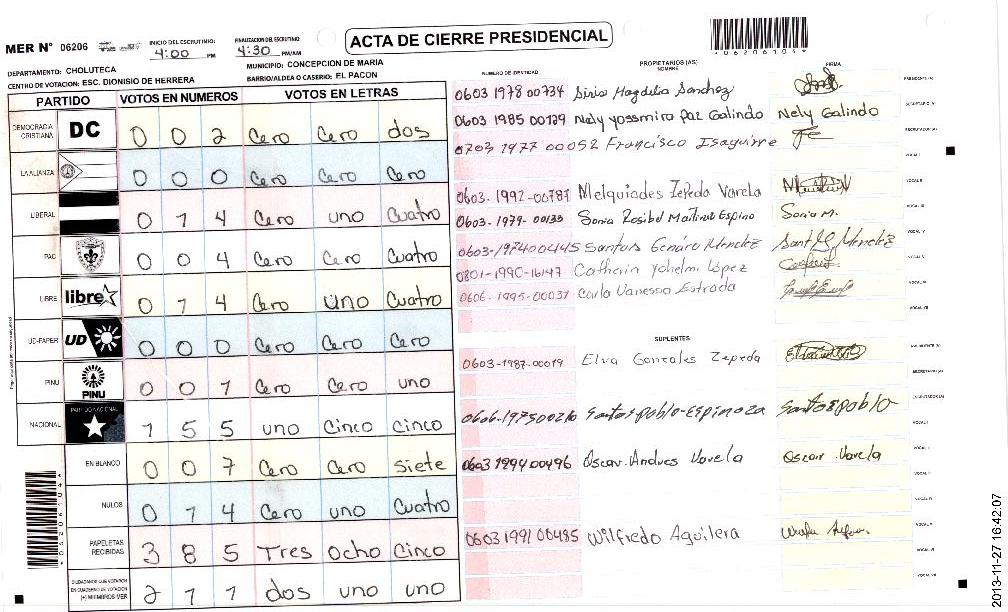 MER N° 06206
INICIO DEL ESCRUTINIO: 4:00 PM
FINALIZACION DEL ESCRUTINIO: 4:30 PM/AM
ACTA DE CIERRE PRESIDENCIAL
DEPARTAMENTO: CHOLUTECA
MUNICIPIO: CONCEPCION DE MARIA
CENTRO DE VOTACION: ESC. DIONISIO DE HERRERA
BARRIO/ALDEA O CASERIO: EL PACON
PARTIDO VOTOS EN NUMEROS VOTOS EN LETRAS
DEMOCRACIA CRISTIANA DC 0 0 2 Cero Cero dos
LA ALIANZA 0 0 0 Cero Cero Cero
LIBERAL 0 1 4 Cero uno Cuatro
PAC 0 0 4 Cero Cero Cuatro
LIBRE libre 0 1 4 Cero uno Cuatro
UD-FAPER UD 0 0 0 Cero Cero Cero
PINU PINU 0 0 1 Cero Cero uno
NACIONAL PARTIDO NACIONAL 1 5 5 uno Cinco Cinco
EN BLANCO 0 0 7 Cero Cero siete
NULOS 0 1 4 Cero uno Cuatro
PAPELETAS RECIBIDAS 3 8 5 Tres Ocho Cinco
CIUDADANOS QUE VOTARON EN CUADERNO DE VOTACION (+) MIEMBROS MER 2 1 1 dos uno uno
NUMERO DE IDENTIDAD PROPIETARIOS (AS) NOMBRE FIRMA
0603 1978 00734 Siria Magdalia Sanchez
0603 1985 00129 Nely yossmira Paz Galindo Nely Galindo
0703 1977 00052 Francisco Isaguirre
0603-1992-00787 Melquiades Zepeda Varela
0603-1979-00133 Sonia Rosibel Martinez Espino Sonia M.
0603-1974 00445 Santos Genaro Mendez
0801-1990-16147 Catherin Yohelmi López
0606-1995-00037 Carla Vanessa Estrada
SUPLENTES
0603-1987-00019 Elva Gonzales Zepeda
0606-1975 00210 Santos pablo-Espinoza Santos pablo
0603 1994 00496 Oscar Andres Varela Oscar Varela
0603 1991 00485 Wilfredo Aguilera
2013-11-27 16:42:07